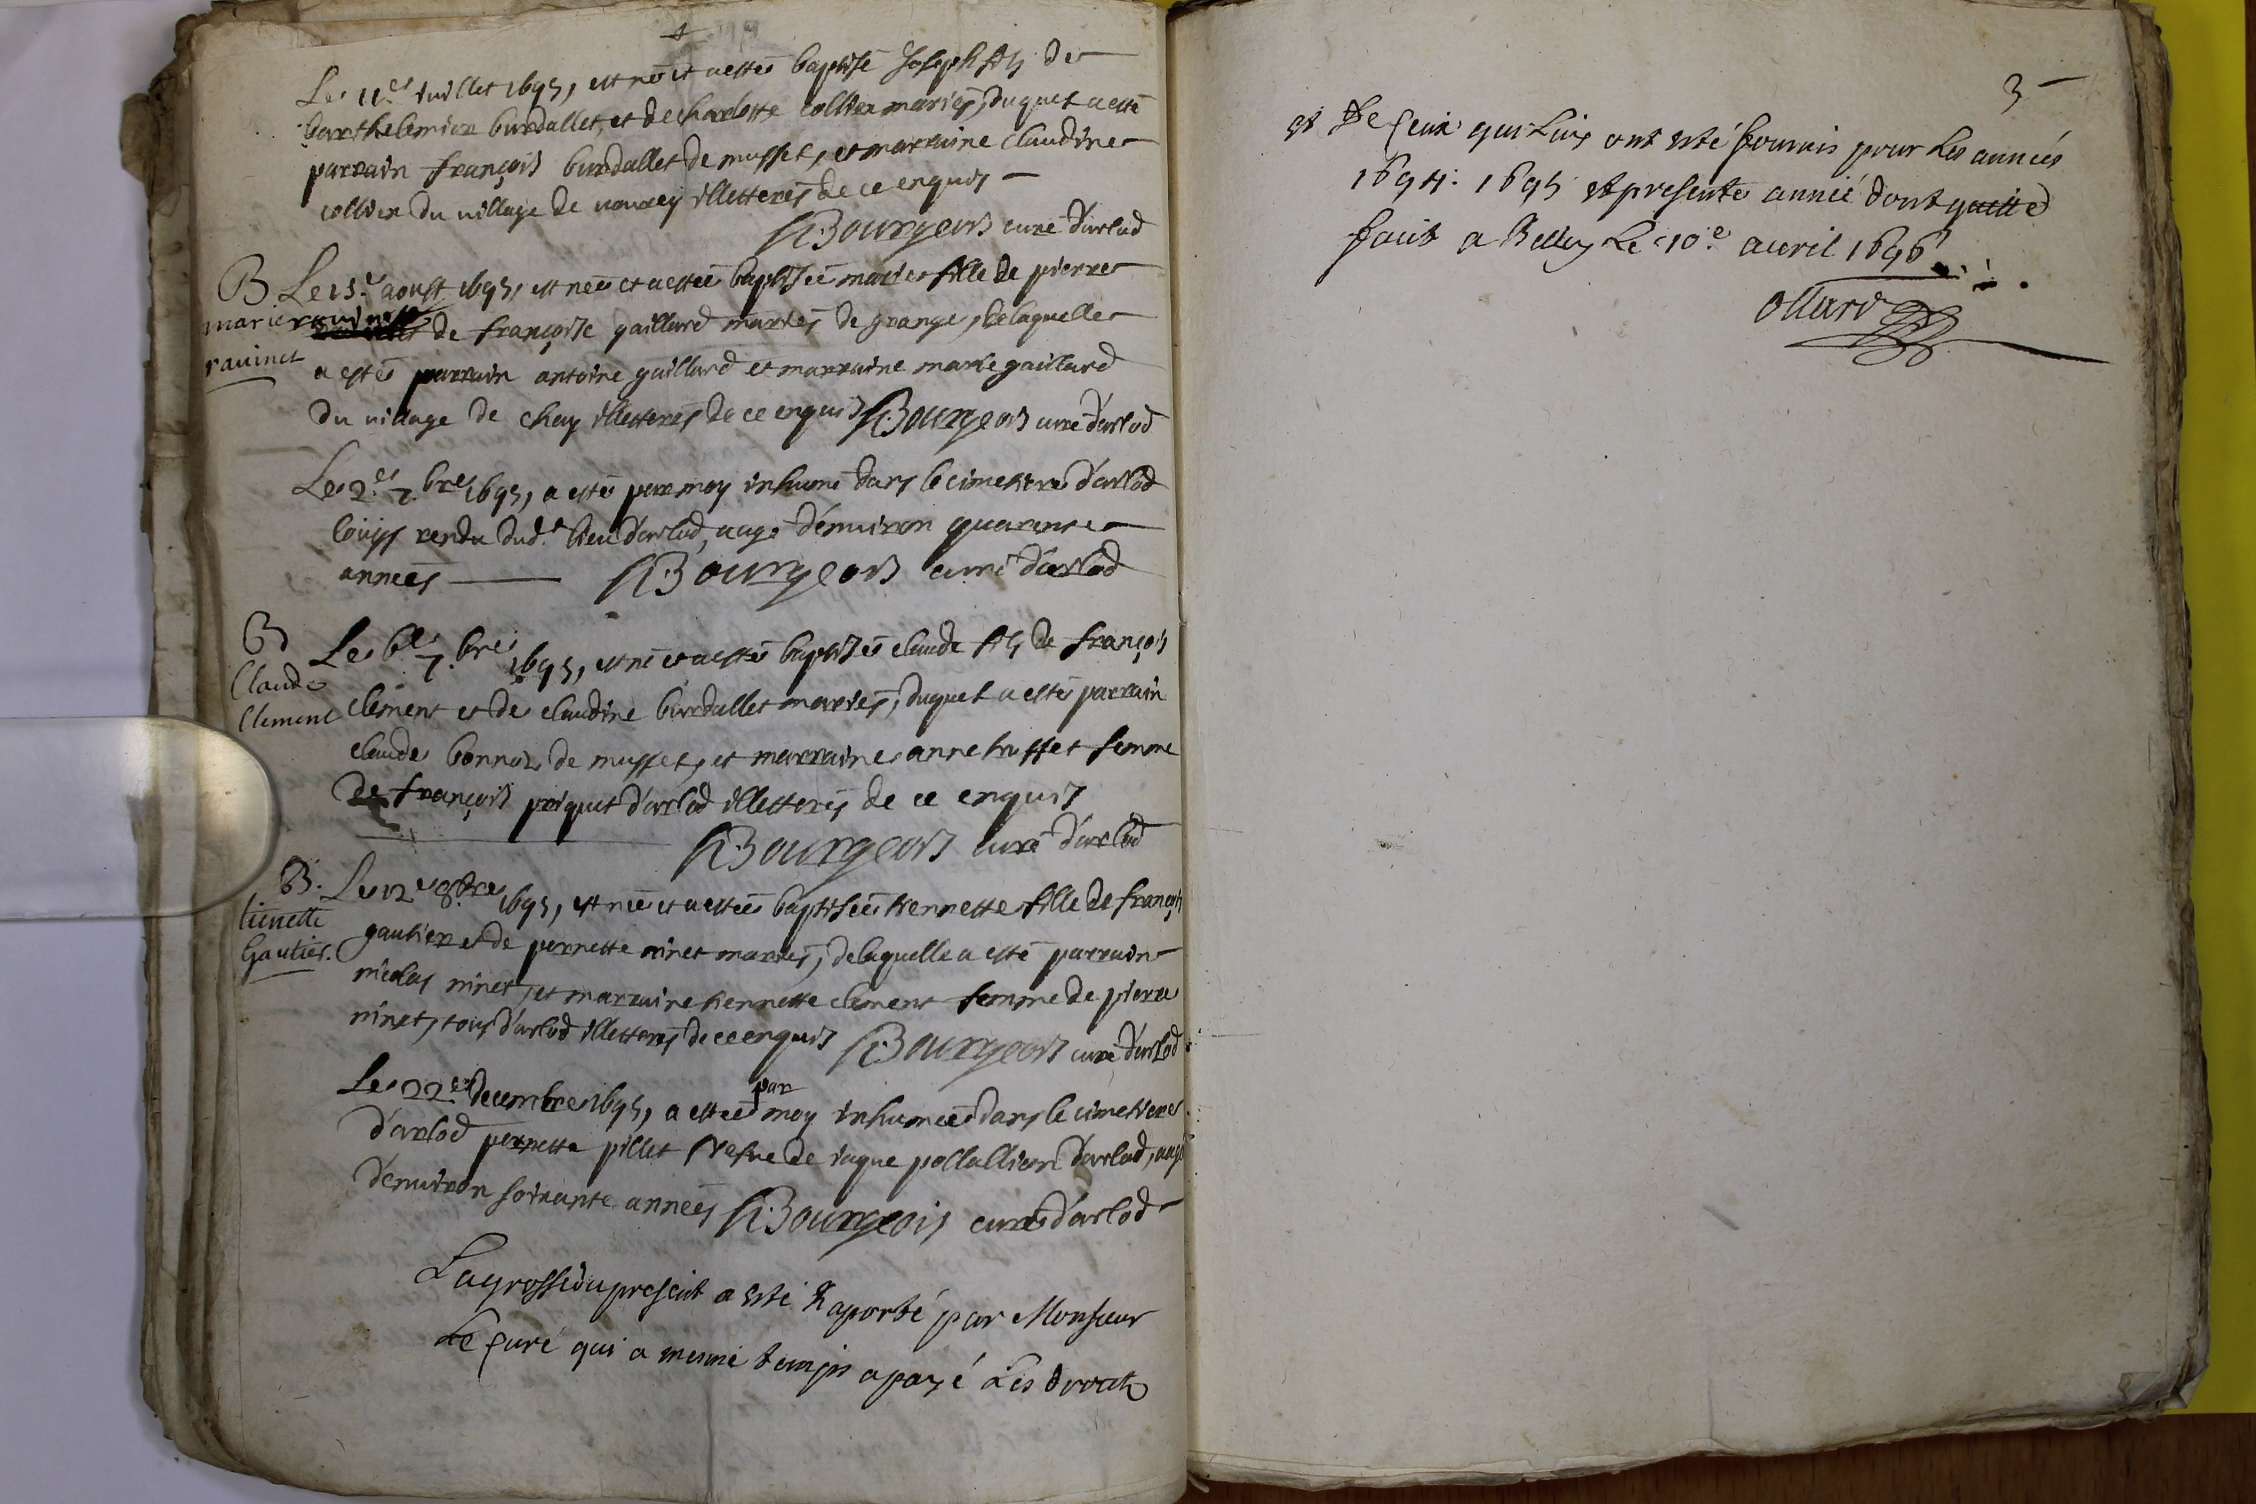 Le 11.e iuillet 1695, est né et a esté baptisé Joseph fils de
barthelemier burdallet, et de charlotte collier mariés, duquel a esté
parrain françois burdallet de musset, et marraine claudine
collier du village de vouvrey illetterés de ce enquis
Bourgeois curé d'arlod
B. Le 15.e aoust 1695, est neé et a esteé baptiseé marie fille de pierre
marie
ravinet
ravinet
de françoise gaillard mariés de grange, de laquelle
a esté parrain antoine gaillard et marraine marie gaillard
du village de chay illetterés de ce enquis Bourgeois curé d'arlod
Le 2.e 7.bre 1695, a esté par moy inhumé dans le cimetiere d'arlod
louys rendu dud.t lieu d'arlod, aagé d'environ quarante
années Bourgeois curé d'arlod
B
Claude
Clement
Le 6.e 7.bre 1695, est né et a esté baptisé claude fils de françois
clement et de claudine burdallet mariés, duquel a esté parrain
claude bonnoz de musset, et marraine anne truffet femme
de françois priquet d'arlod illetterés de ce enquis
Bourgeois curé d'arlod
B.
tienette
Gautier.
Le 12.e 8.bre 1695, est neé et a esteé baptiseé tiennette fille de françois
gautier et de pernette ninet mariés, de laquelle a esté parrain
nicolas ninet, et marraine tiennette clement femme de pierre
ninet, tous d'arlod illetterés de ce enquis Bourgeois curé d'arlod
Le 22.e decembre 1695, a esteé par moy inhumeé dans le cimetiere
d'arlod pernette pillet vefve de iaque pollallion d'arlod, aagé
d'environ soixante années Bourgeois curé d'arlod
La grosse du present a esté Raporté par Monsieur
Le Curé qui a mesme temps a payé Les droits
3
et de Ceux qui Luy ont esté fournis pour Les années
1694: 1695 et presente année dont quitte
fait a Belley Le 10.e avril 1696
Ollard